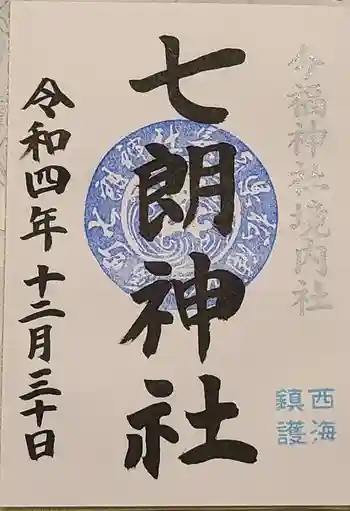 今福神社境内社
西海
鎮護
七朗神社
令和四年十二月三十日